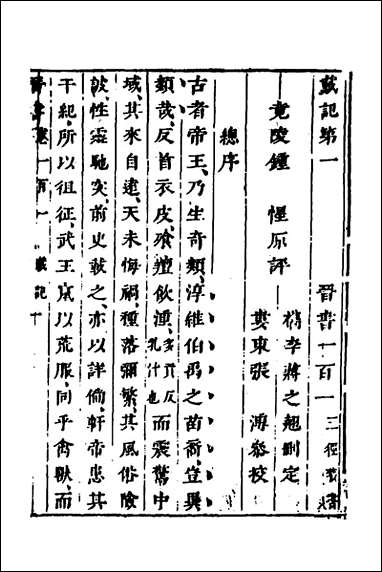 載記第一　晉書一百一
竟陵鍾　惺原評　檇李蔣之翹刪定
婁東張　溥叅校
總序
古者帝王乃生奇類淳維伯禹之苗裔豈異
類哉反首衣皮飱羶飲湩多貢反乳汁也而震驚中
域其來自遠天未悔禍種落彌繁其風俗險
詖性靈馳突前史載之亦以詳備軒帝患其
干紀所以徂征武王竄以荒服同乎禽獸而
晉書卷一百一　載記